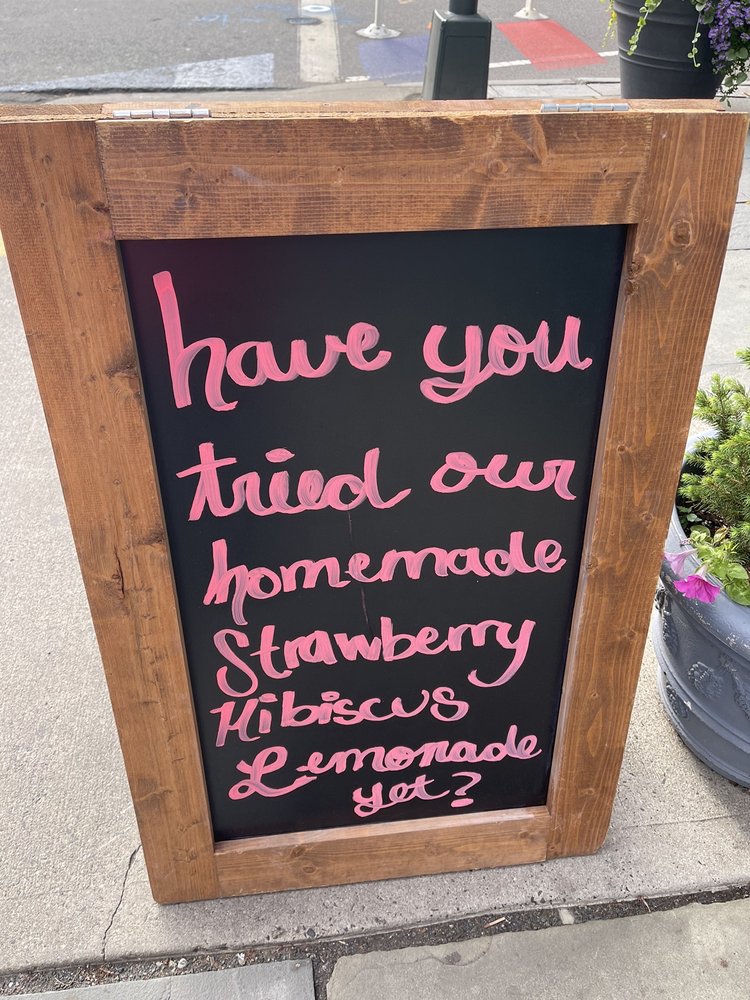 have you
tried our
homemade
Strawberry
Hibiscus
Lemonade
yet?